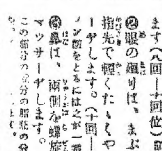 ます(八回―十回位)
❷眼の廻りは、まぶ
指先で輕くたゝくや
ーヂします。(十回―
ノン顔をとるには之が一番
❸鼻は、兩側を螺旋
マッサーヂします。
この部分の
分の脂肪の分